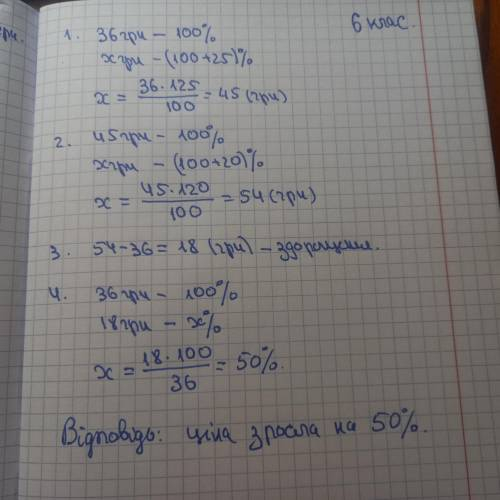 6 клас.
1. 36 грн – 100%
x грн – (100+25)%
x = 36·125/100 = 45 (грн)
2. 45 грн – 100%
x грн – (100+20)%
x = 45·120/100 = 54 (грн)
3. 54-36 = 18 (грн) – здорожчання.
4. 36 грн – 100%
18 грн – x%
x = 18·100/36 = 50%.
Відповідь: ціна зросла на 50%.